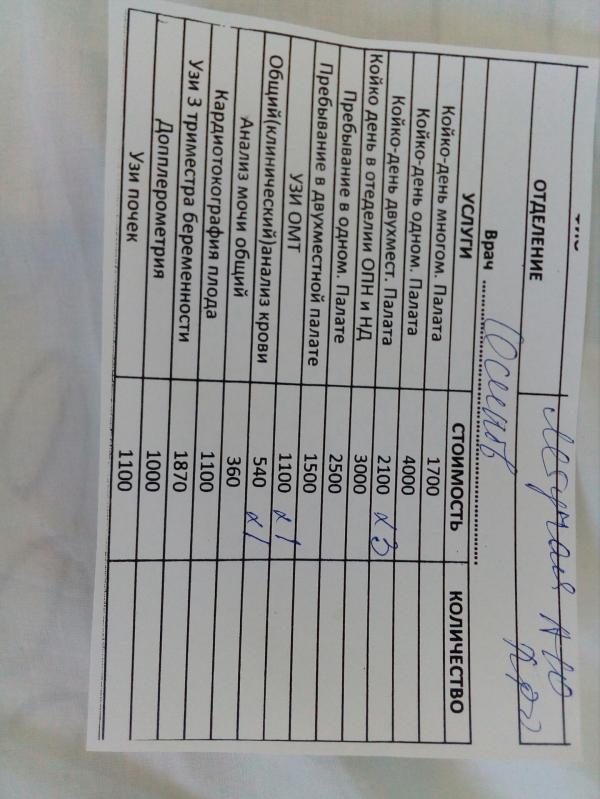 ОТДЕЛЕНИЕ
Врач
УСЛУГИ СТОИМОСТЬ КОЛИЧЕСТВО
Койко-день многом. Палата 1700
Койко-день одном. Палата 4000
Койко-день двухмест. Палата 2100 x3
Койко день в отеделии ОПН и НД 3000
Пребывание в одном. Палате 2500
Пребывание в двухместной палате 1500
УЗИ ОМТ 1100 x1
Общий(клинический)анализ крови 540 x1
Анализ мочи общий 360
Кардиотокография плода 1100
Узи 3 триместра беременности 1870
Допплерометрия 1000
Узи почек 1100